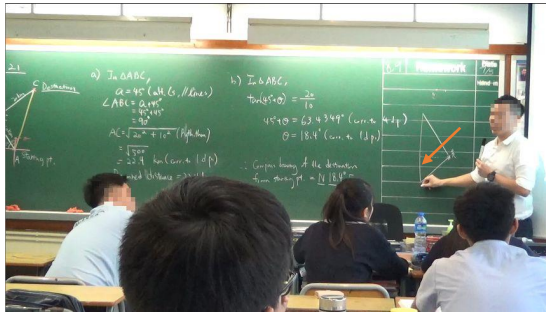 2.1
C Destination
A Starting pt.
a) In ΔABC,
a = 45° (alt. ∠s, // lines)
∠ABC = a + 45°
= 45° + 45°
= 90°
AC = √20² + 10² (Pyth. thm)
= √500
= 22.4 km (corr. to 1 d.p.)
b) In ΔABC,
tan(45°+θ) = 20/10
45°+θ = 63.4349° (corr. to 4 d.p.)
θ = 18.4° (corr. to 1 d.p.)
∴ Compass bearing of the destination
from starting pt. = N 18.4°
Homework